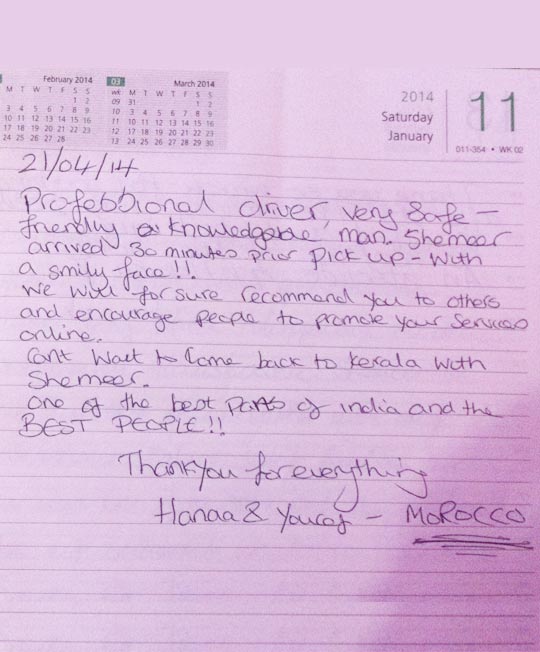 February 2014
M T W T F S S
1 2
3 4 5 6 7 8 9
10 11 12 13 14 15 16
17 18 19 20 21 22 23
24 25 26 27 28
03 March 2014
wk M T W T F S S
09 31 1 2
10 3 4 5 6 7 8 9
11 10 11 12 13 14 15 16
12 17 18 19 20 21 22 23
13 24 25 26 27 28 29 30
2014
Saturday
January
11
011-354 • WK 02
21/04/14
Professional driver, very safe –
friendly & knowledgable man. Shemeer
arrived 30 minutes prior pick up – with
a smily face!!
we will for sure recommend you to others
and encourage people to promote your services
online.
Cant wait to come back to Kerala with
Shemeer.
one of the best parts of india and the
BEST PEOPLE!!
Thankyou for everything
Hanaa & Youcef – MOROCCO